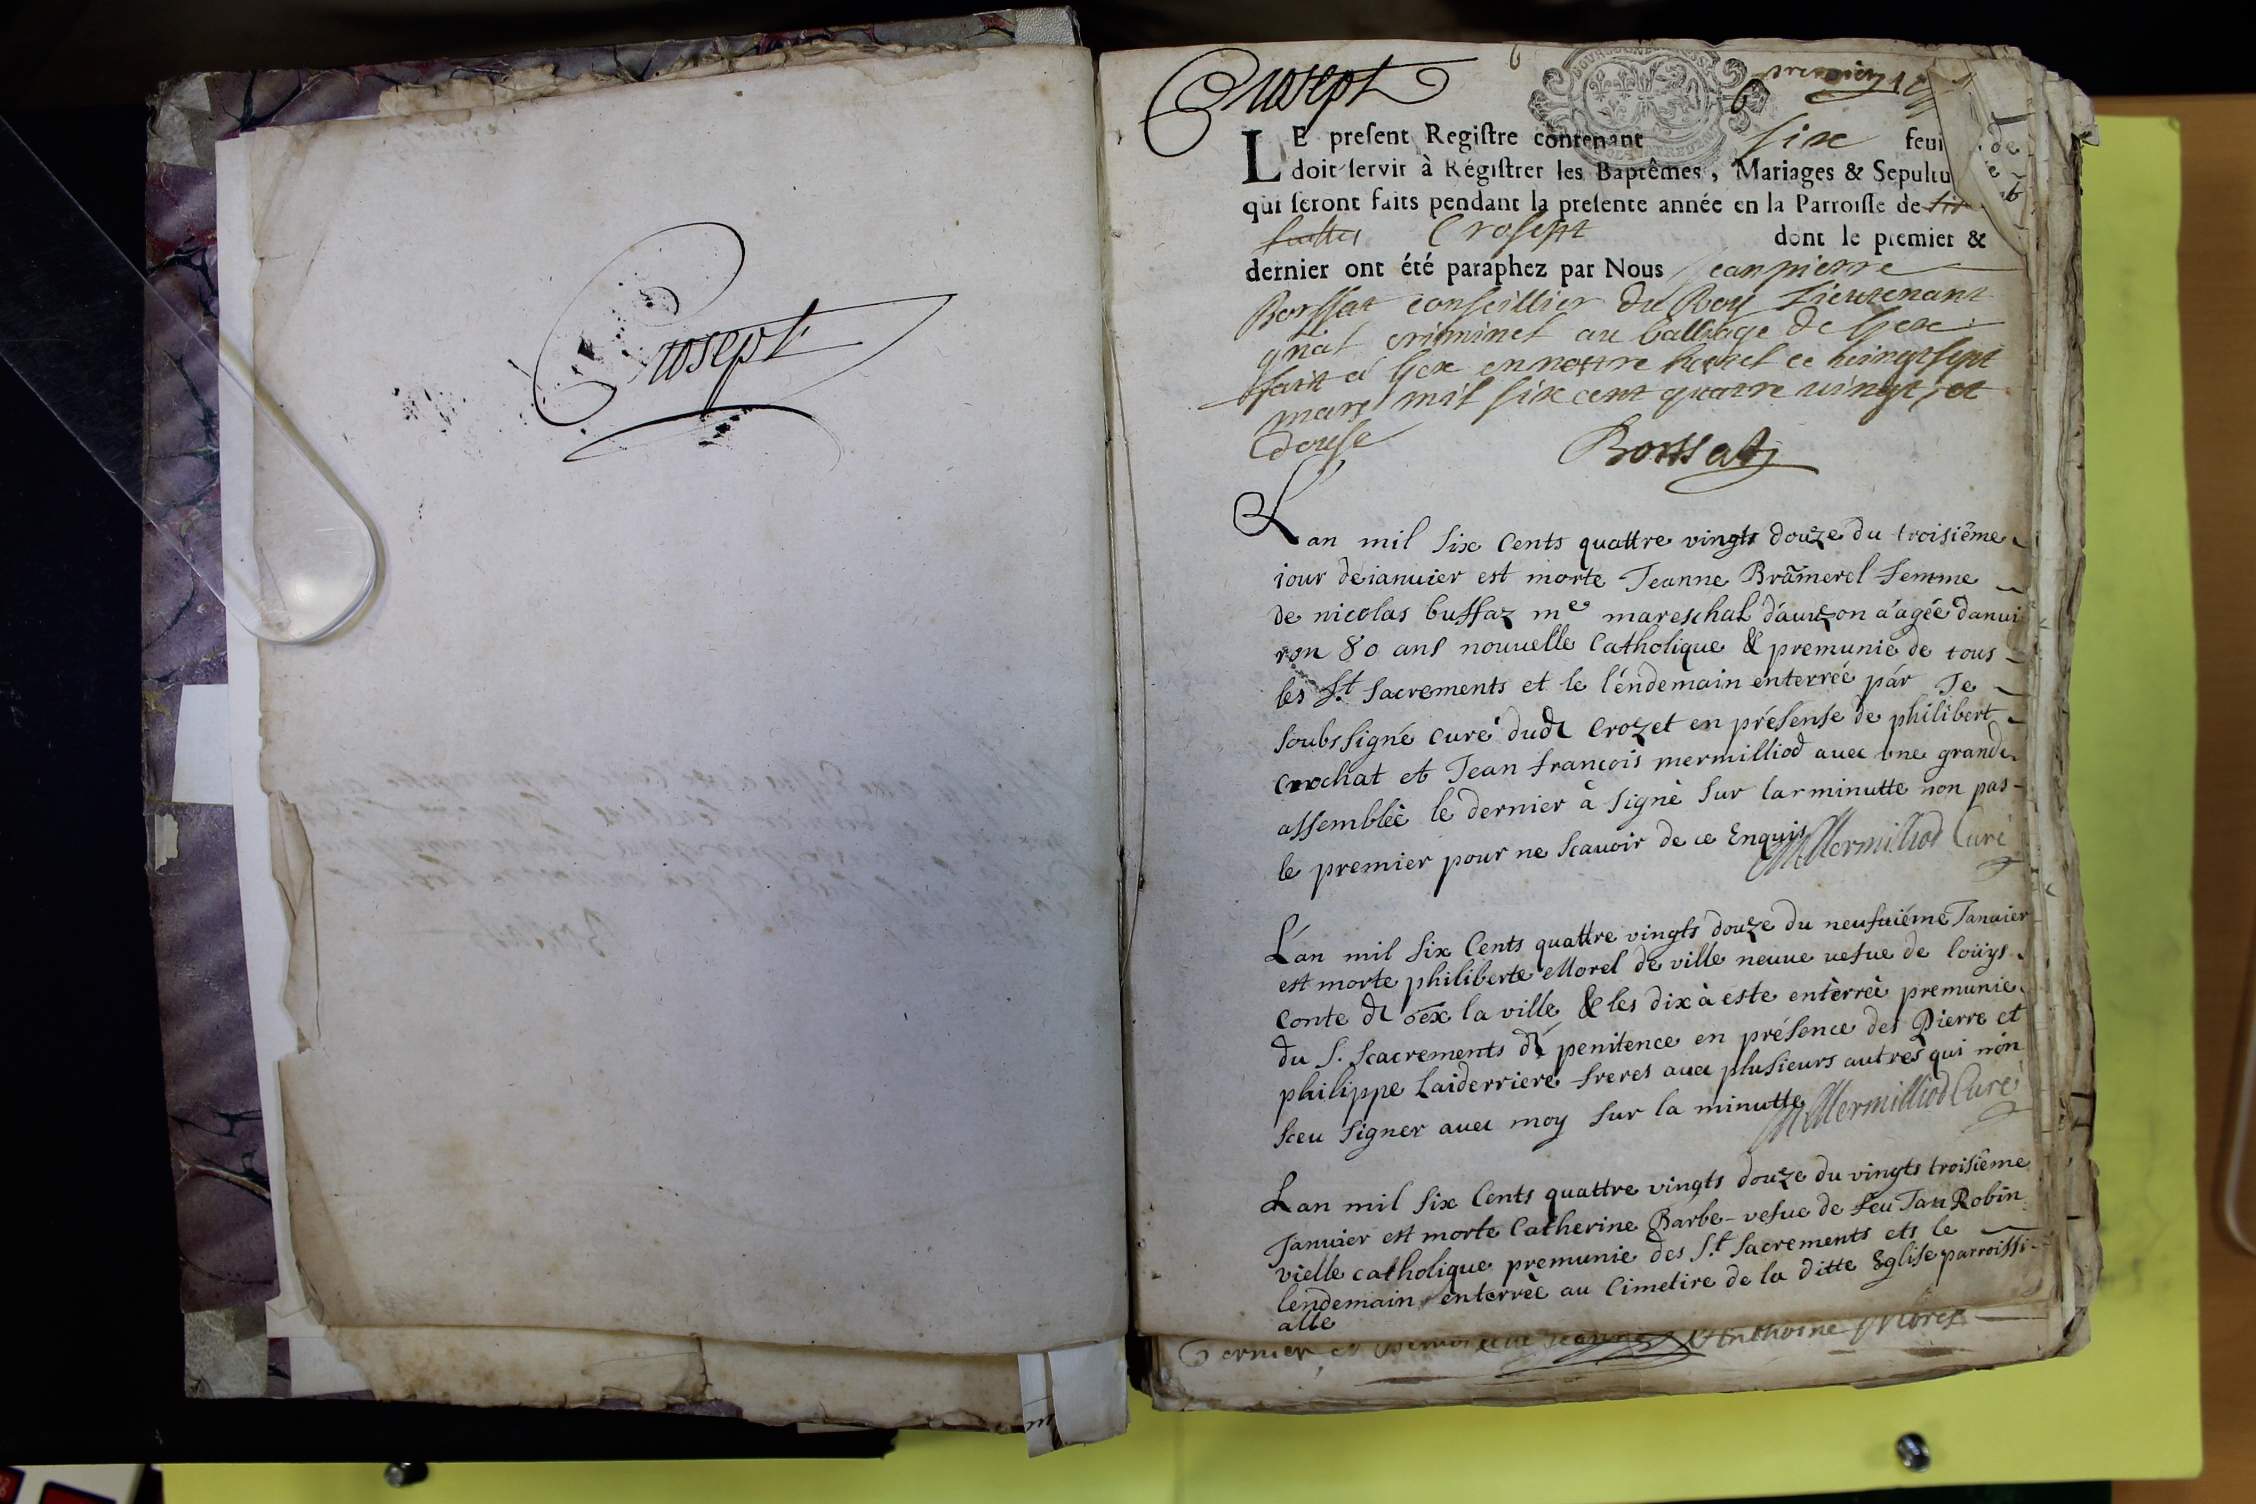 Crosept
Crosept
premier
6
LE present Registre contenant six feui
doit servir à Régistrer les Baptêmes, Mariages & Sepultu
qui seront faits pendant la presente année en la Parroisse de
Crosept dont le premier &
dernier ont été paraphez par Nous Jean pierre
Borssat conseillier du Roy Lieutenant
gñal criminel au balliage de Gex
fait à Gex en nostre hostel ce vingt sept
mars mil six cent quatre vingt et
douse
Borssat
Lan mil six Cents quattre vingts douze du troisiême
iour de ianuier est morte Jeanne Brãmerel femme
de nicolas buffaz me mareschal d'auuzon a'agée d'anui
ron 80 ans nouuelle Catholique & premunie de tous
les St. Sacrements et le l'endemain enterréé pár Je
soubssigné curé dudt Crozet en présense de philibert
crochat et Jean francois mermilliod auec une grande
assemblèe le dernier à signè sur lar minutte non pas
le premier pour ne scauoir de ce Enquis
Mermilliod Curé
L'an mil six Cents quattre vingts douze du neufuiéme Januier
est morte philiberte Morel de ville neuue uesue de loüys
Conte de Gex la ville & les dix à este entèrrèe premunie
du S. Scacrements de penitence en présence des Pierre et
philippe Laiderriere freres auec plusieurs autres qui non
sceu signer auec moy sur la minutte
Mermilliod Curé
Lan mil six Cents quattre vingts douze du vingts troisiême
Januier est morte Catherine Barbe vesue de feu Jan Robin
vielle catholique premunie des St. Sacrements ets le
lendemain enterrèe au Cimetire de la ditte Eglise parroissi
alle
Anthoine Morel